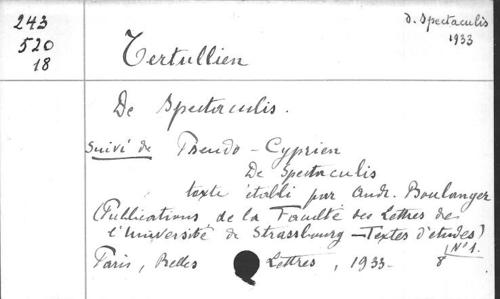 243
520
18
d. Spectaculis
1933
Tertullien
De Spectaculis.
suivi de Pseudo-Cyprien
De Spectaculis
texte établi par Andr. Boulanger
(Publications de la Faculté des Lettres de
l'Université de Strassbourg - Textes d'études)
N° 1.
Paris, Belles Lettres, 1933. 8